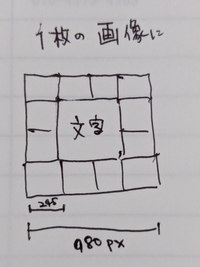 1枚の画像に
文字
245
980px